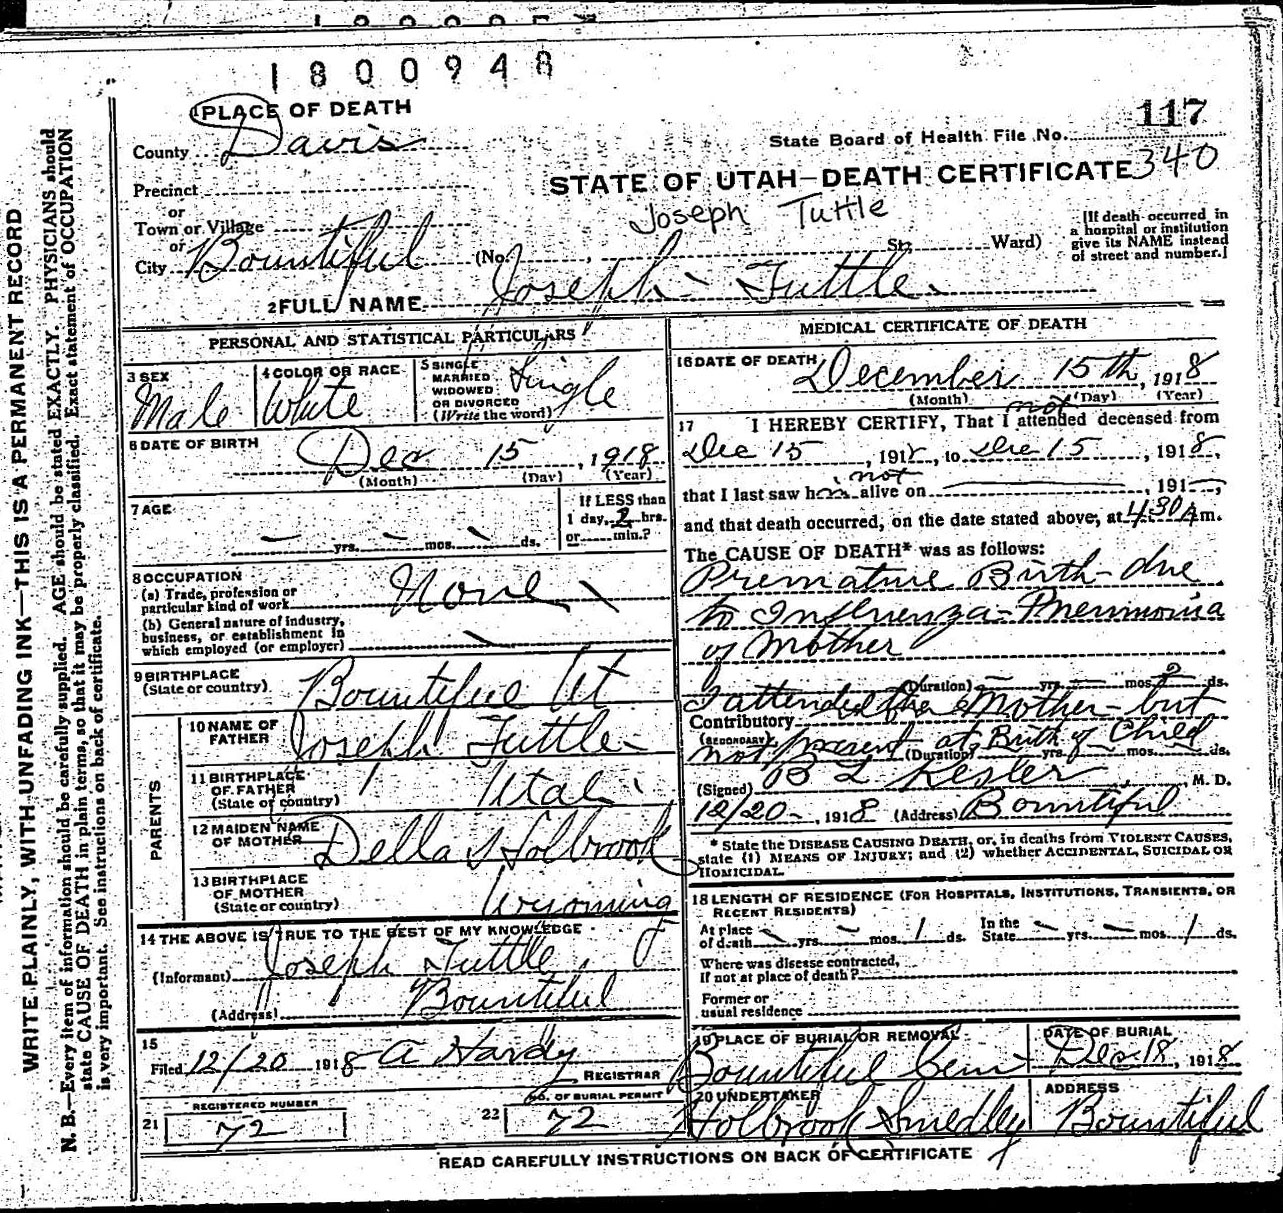 1800948
1 PLACE OF DEATH
117
County Davis
State Board of Health File No.
340
Precinct
STATE OF UTAH—DEATH CERTIFICATE
or
Joseph Tuttle
Town or Village
or
City Bountiful (No. , St; Ward)
[If death occurred in
a hospital or institution
give its NAME instead
of street and number.]
2 FULL NAME Joseph Tuttle
PERSONAL AND STATISTICAL PARTICULARS
3 SEX
Male
4 COLOR OR RACE
White
5 SINGLE
MARRIED
WIDOWED
OR DIVORCED
(Write the word)
Single
6 DATE OF BIRTH
Dec 15, 1918
(Month) (Day) (Year)
7 AGE
yrs. mos. ds.
If LESS than
1 day, 2 hrs.
or min.?
8 OCCUPATION
(a) Trade, profession or
particular kind of work None
(b) General nature of industry,
business, or establishment in
which employed (or employer)
9 BIRTHPLACE
(State or country) Bountiful Ut
PARENTS
10 NAME OF
FATHER Joseph Tuttle
11 BIRTHPLACE
OF FATHER
(State or country) Utah
12 MAIDEN NAME
OF MOTHER Della Holbrook
13 BIRTHPLACE
OF MOTHER
(State or country) Wyoming
14 THE ABOVE IS TRUE TO THE BEST OF MY KNOWLEDGE
(Informant) Joseph Tuttle
(Address) Bountiful
15
Filed 12/20 1918 A Hardy
REGISTRAR
REGISTERED NUMBER
21 72
NO. OF BURIAL PERMIT
22 72
MEDICAL CERTIFICATE OF DEATH
16 DATE OF DEATH
December 15th, 1918
(Month) (Day) (Year)
not
17 I HEREBY CERTIFY, That I attended deceased from
Dec 15, 1918, to Dec 15, 1918,
not
that I last saw him alive on , 191 ,
and that death occurred, on the date stated above, at 4:30 A m.
The CAUSE OF DEATH* was as follows:
Premature Birth due
to Influenza-Pneumonia
of Mother
(Duration) yrs. mos. 2 ds.
I attended the Mother but
Contributory
(SECONDARY)
not present at Birth of Child
(Duration) yrs. mos. ds.
(Signed) B L Kesler, M. D.
12/20, 1918 (Address) Bountiful
* State the DISEASE CAUSING DEATH, or, in deaths from VIOLENT CAUSES,
state (1) MEANS OF INJURY; and (2) whether ACCIDENTAL, SUICIDAL OR
HOMICIDAL.
18 LENGTH OF RESIDENCE (FOR HOSPITALS, INSTITUTIONS, TRANSIENTS, OR
RECENT RESIDENTS)
At place
of death yrs. mos. 1 ds.
In the
State yrs. mos. 1 ds.
Where was disease contracted,
If not at place of death?
Former or
usual residence
19 PLACE OF BURIAL OR REMOVAL
Bountiful Cem
DATE OF BURIAL
Dec 18, 1918
20 UNDERTAKER
Holbrook Smedley
ADDRESS
Bountiful
READ CAREFULLY INSTRUCTIONS ON BACK OF CERTIFICATE
WRITE PLAINLY, WITH UNFADING INK—THIS IS A PERMANENT RECORD
N. B.—Every item of information should be carefully supplied. AGE should be stated EXACTLY. PHYSICIANS should
state CAUSE OF DEATH in plain terms, so that it may be properly classified. Exact statement of OCCUPATION
is very important. See instructions on back of certificate.